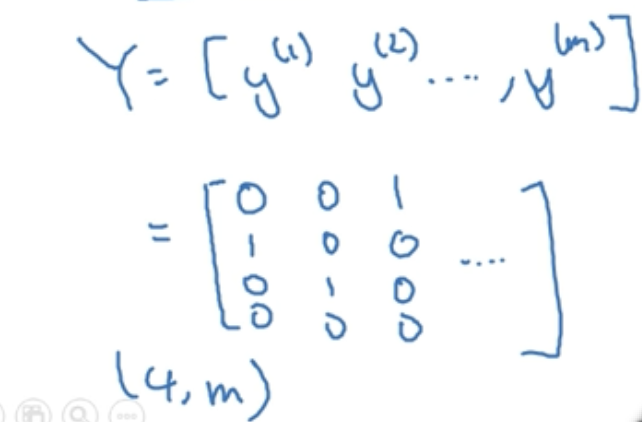 Y = [ y^(1) y^(2) ...., y^(m) ]
= [ 0 0 1
1 0 0 ....
0 1 0
0 0 0 ]
(4, m)